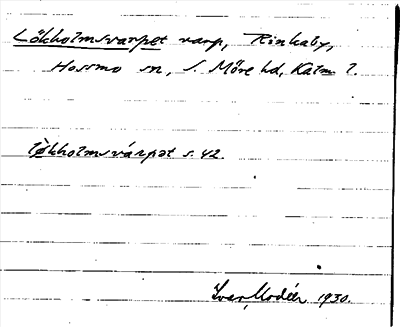 Lökholmsvarpet varp, Rinkaby,
Hossmo sn, S. Möre hd, Kalm l.
løkholmsvárpət s. 42.
Ivar Modéer 1930.